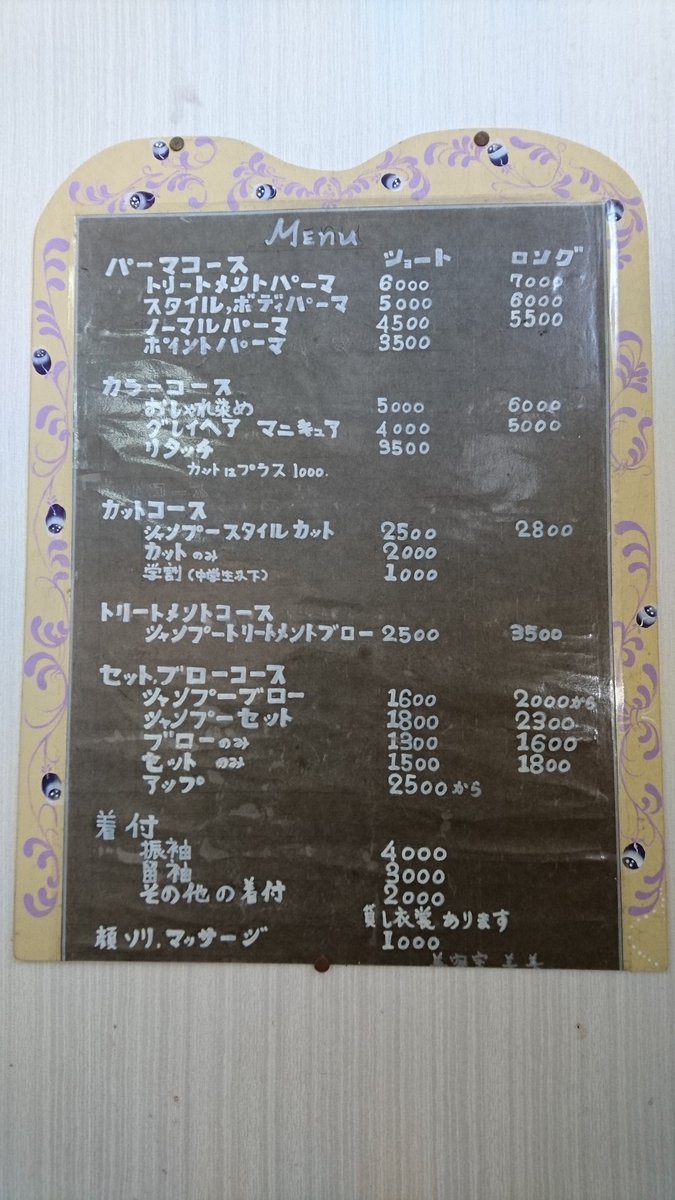 MENU
パーマコース ショート ロング
トリートメントパーマ 6000 7000
スタイル,ボディパーマ 5000 6000
ノーマルパーマ 4500 5500
ポイントパーマ 3500
カラーコース
おしゃれ染め 5000 6000
グレイヘア マニキュア 4000 5000
リタッチ 3500
カットはプラス1000.
カットコース
シャンプースタイルカット 2500 2800
カットのみ 2000
学割(中学生以下) 1000
トリートメントコース
シャンプートリートメントブロー 2500 3500
セット,ブローコース
シャンプーブロー 1600 2000から
シャンプーセット 1800 2300
ブローのみ 1300 1600
セット のみ 1500 1800
アップ 2500から
着付
振袖 4000
留袖 3000
その他の着付 2000
貸し衣裳あります
顔ソリ,マッサージ 1000